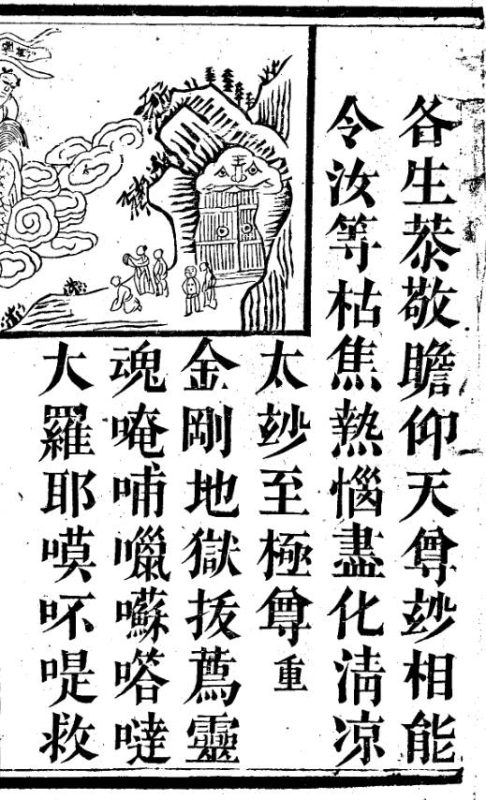 各生恭敬瞻仰天尊玅相能
令汝等枯焦熱惱盡化清凉
太玅至極尊重
金剛地獄拔薦靈
魂唵哺㘓囌嗒噠
大羅耶嘆吥哫救